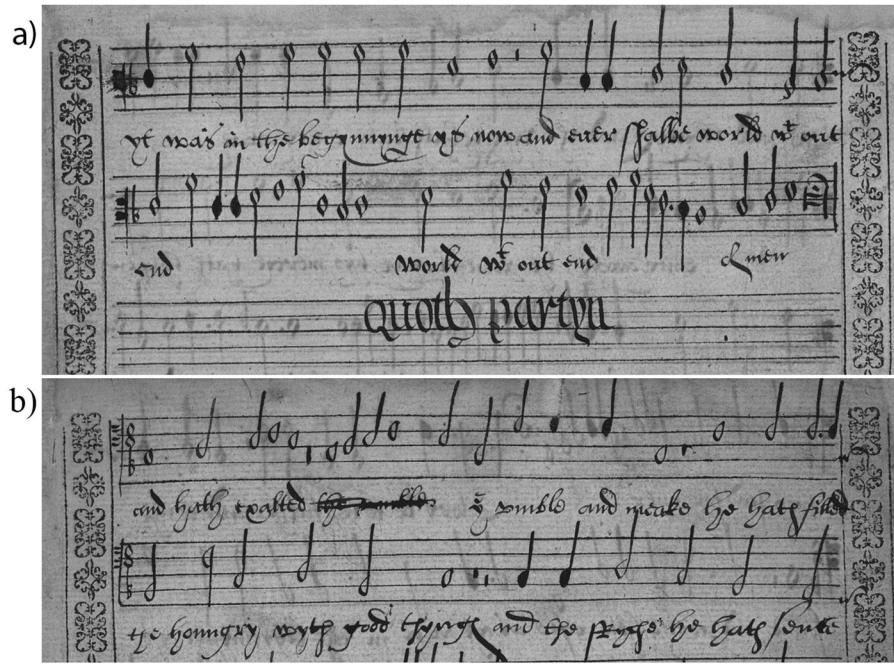 a)
yt was in the begynnynge ys now and euer shalbe world wt out
end world wt out end Amen
quoth partyn
b)
and hath exalted the umble ye vmble and meake he hath filled
the houngry wyth good thyngs and the ryche he hath sente